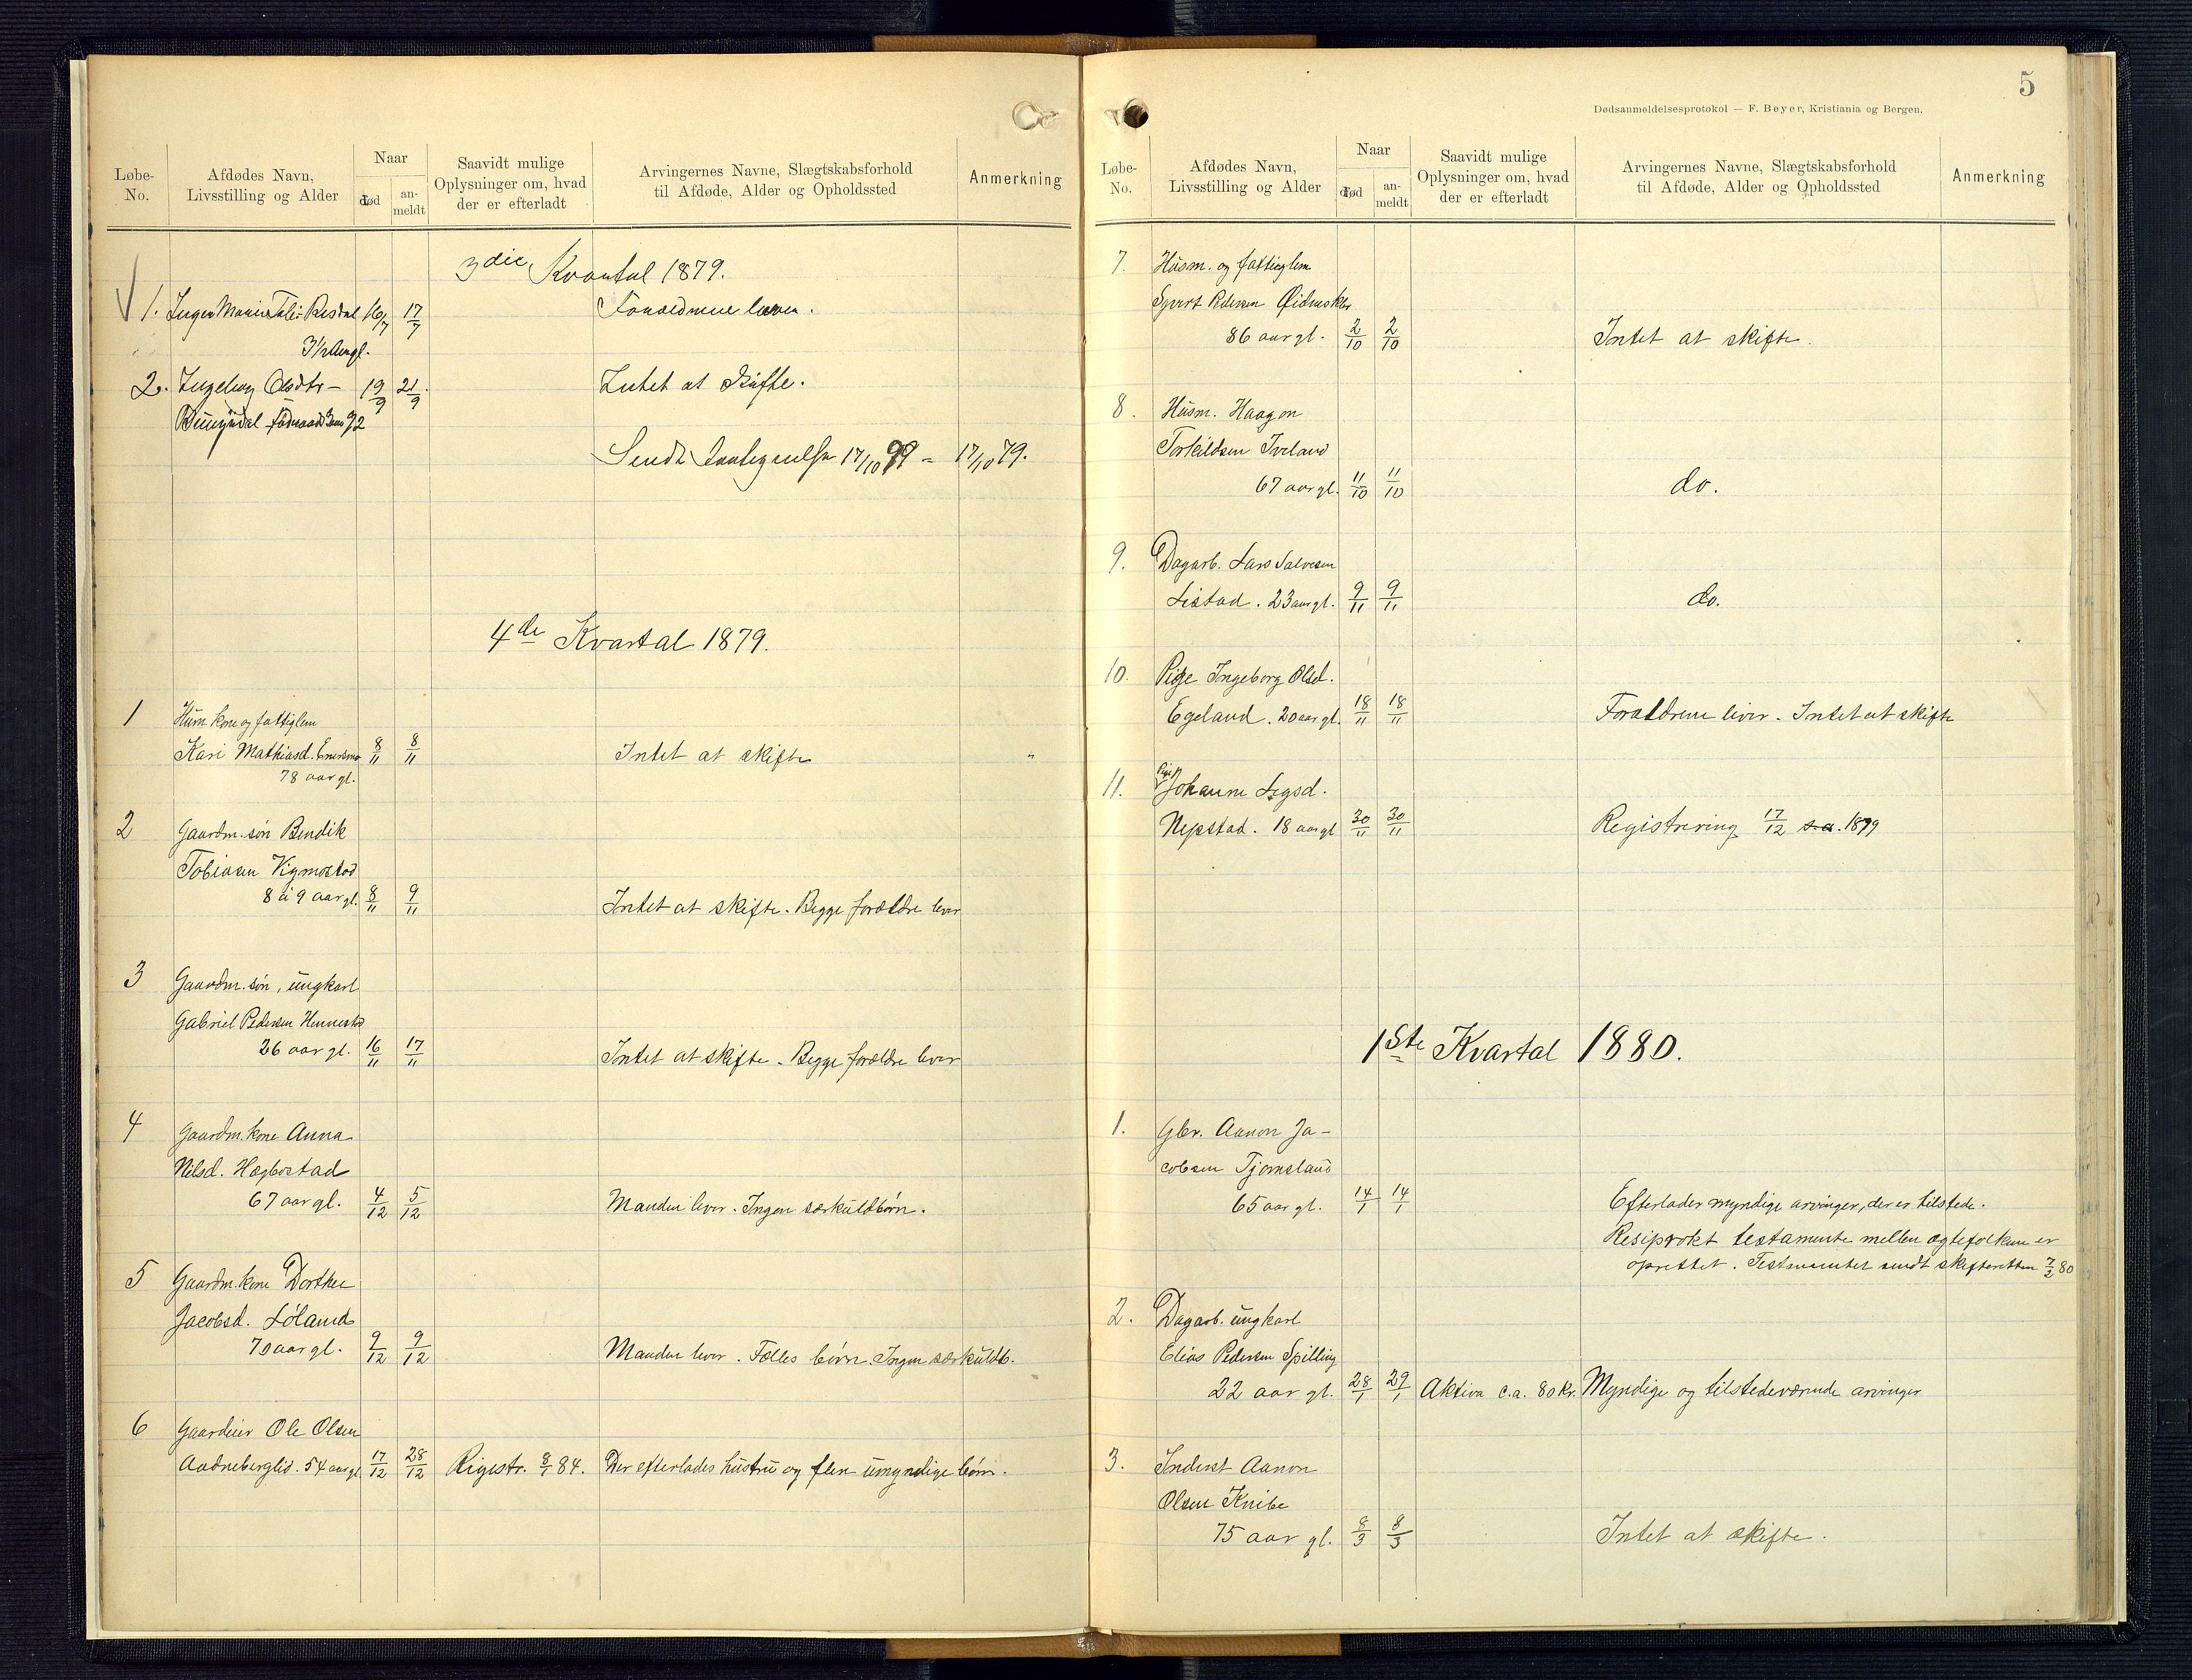 Løbe-No.
Afdødes Navn, Livsstilling og Alder
Naar
død
an-meldt
Saavidt mulige Oplysninger om, hvad der er efterladt
Arvingernes Navne, Slægtskabsforhold til Afdøde, Alder og Opholdssted
Anmerkning
3die Kvartal 1879.
1. Inger Marie 16/7 17/7
3½ Aar gl.
2. Ingeborg Olsdtr – 19/9 21/9 Intet at Skifte.
Sendt 17/10 79 – 17/10 79.
4de Kvartal 1879.
1 Husm. kone og fattiglem
Kari Mathiasd. 8/11 8/11 Intet at skifte "
78 aar gl.
2 Gaardm. søn Bendik
Tobiasen Vigmostad
8 à 9 aar gl. 8/11 9/11 Intet at skifte. Begge forældre lever
3 Gaardm. søn, ungkarl
Gabriel Pedersen Hennestad
26 aar gl. 16/11 17/11 Intet at skifte. Begge forældre lever
4 Gaardm. kone Anna
Nilsd. Hægbostad
67 aar gl. 4/12 5/12 Manden lever. Ingen særkuldbørn.
5 Gaardm. kone Dorthee
Jacobsd. Løland
70 aar gl. 9/12 9/12 Manden lever. Fælles børn. Ingen særkuldb.
6 Gaardeier Ole Olsen
Aadneberglid. 54 aar gl. 17/12 28/12 Rigestr. 8/1 84. Der efterlades hustru og flere umyndige børn.
5
Dødsanmeldelsesprotokol — F. Beyer, Kristiania og Bergen.
Løbe-No.
Afdødes Navn, Livsstilling og Alder
Naar
død
an-meldt
Saavidt mulige Oplysninger om, hvad der er efterladt
Arvingernes Navne, Slægtskabsforhold til Afdøde, Alder og Opholdssted
Anmerkning
7. Husm. og fattiglem
Syvert Pedersen
86 aar gl. 2/10 2/10 Intet at skifte.
8. Husm. Haagon
Torkildsen Iveland
67 aar gl. 11/10 11/10 do.
9. Dagarb. Lars Salvesen
Listad. 23 aar gl. 9/11 9/11 do.
10. Pige Ingeborg Olsd.
Egeland. 20 aar gl. 18/11 18/11 Forældrene lever. Intet at skifte
11. Pige Johanne Segsd.
Nepstad. 18 aar gl 30/11 30/11 Registrering 17/12 s.a. 1879
1ste Kvartal 1880.
1. Gbr. Aanon Ja-
cobsen Tjomsland
65 aar gl. 14/1 14/1 Efterlader myndige arvinger, der er tilstede.
Resiprokt testamente mellem ægtefolkene er
oprettet. Testamentet sendt skifteretten 7/2 80
2. Dagarb. ungkarl
Elias Pedersen Spilling
22 aar gl. 28/1 29/1 Aktiva c.a. 80 Kr. Myndige og tilstedeværende arvinger
3. Inderst Aanon
Olsen Knibe
75 aar gl. 8/3 8/3 Intet at skifte.